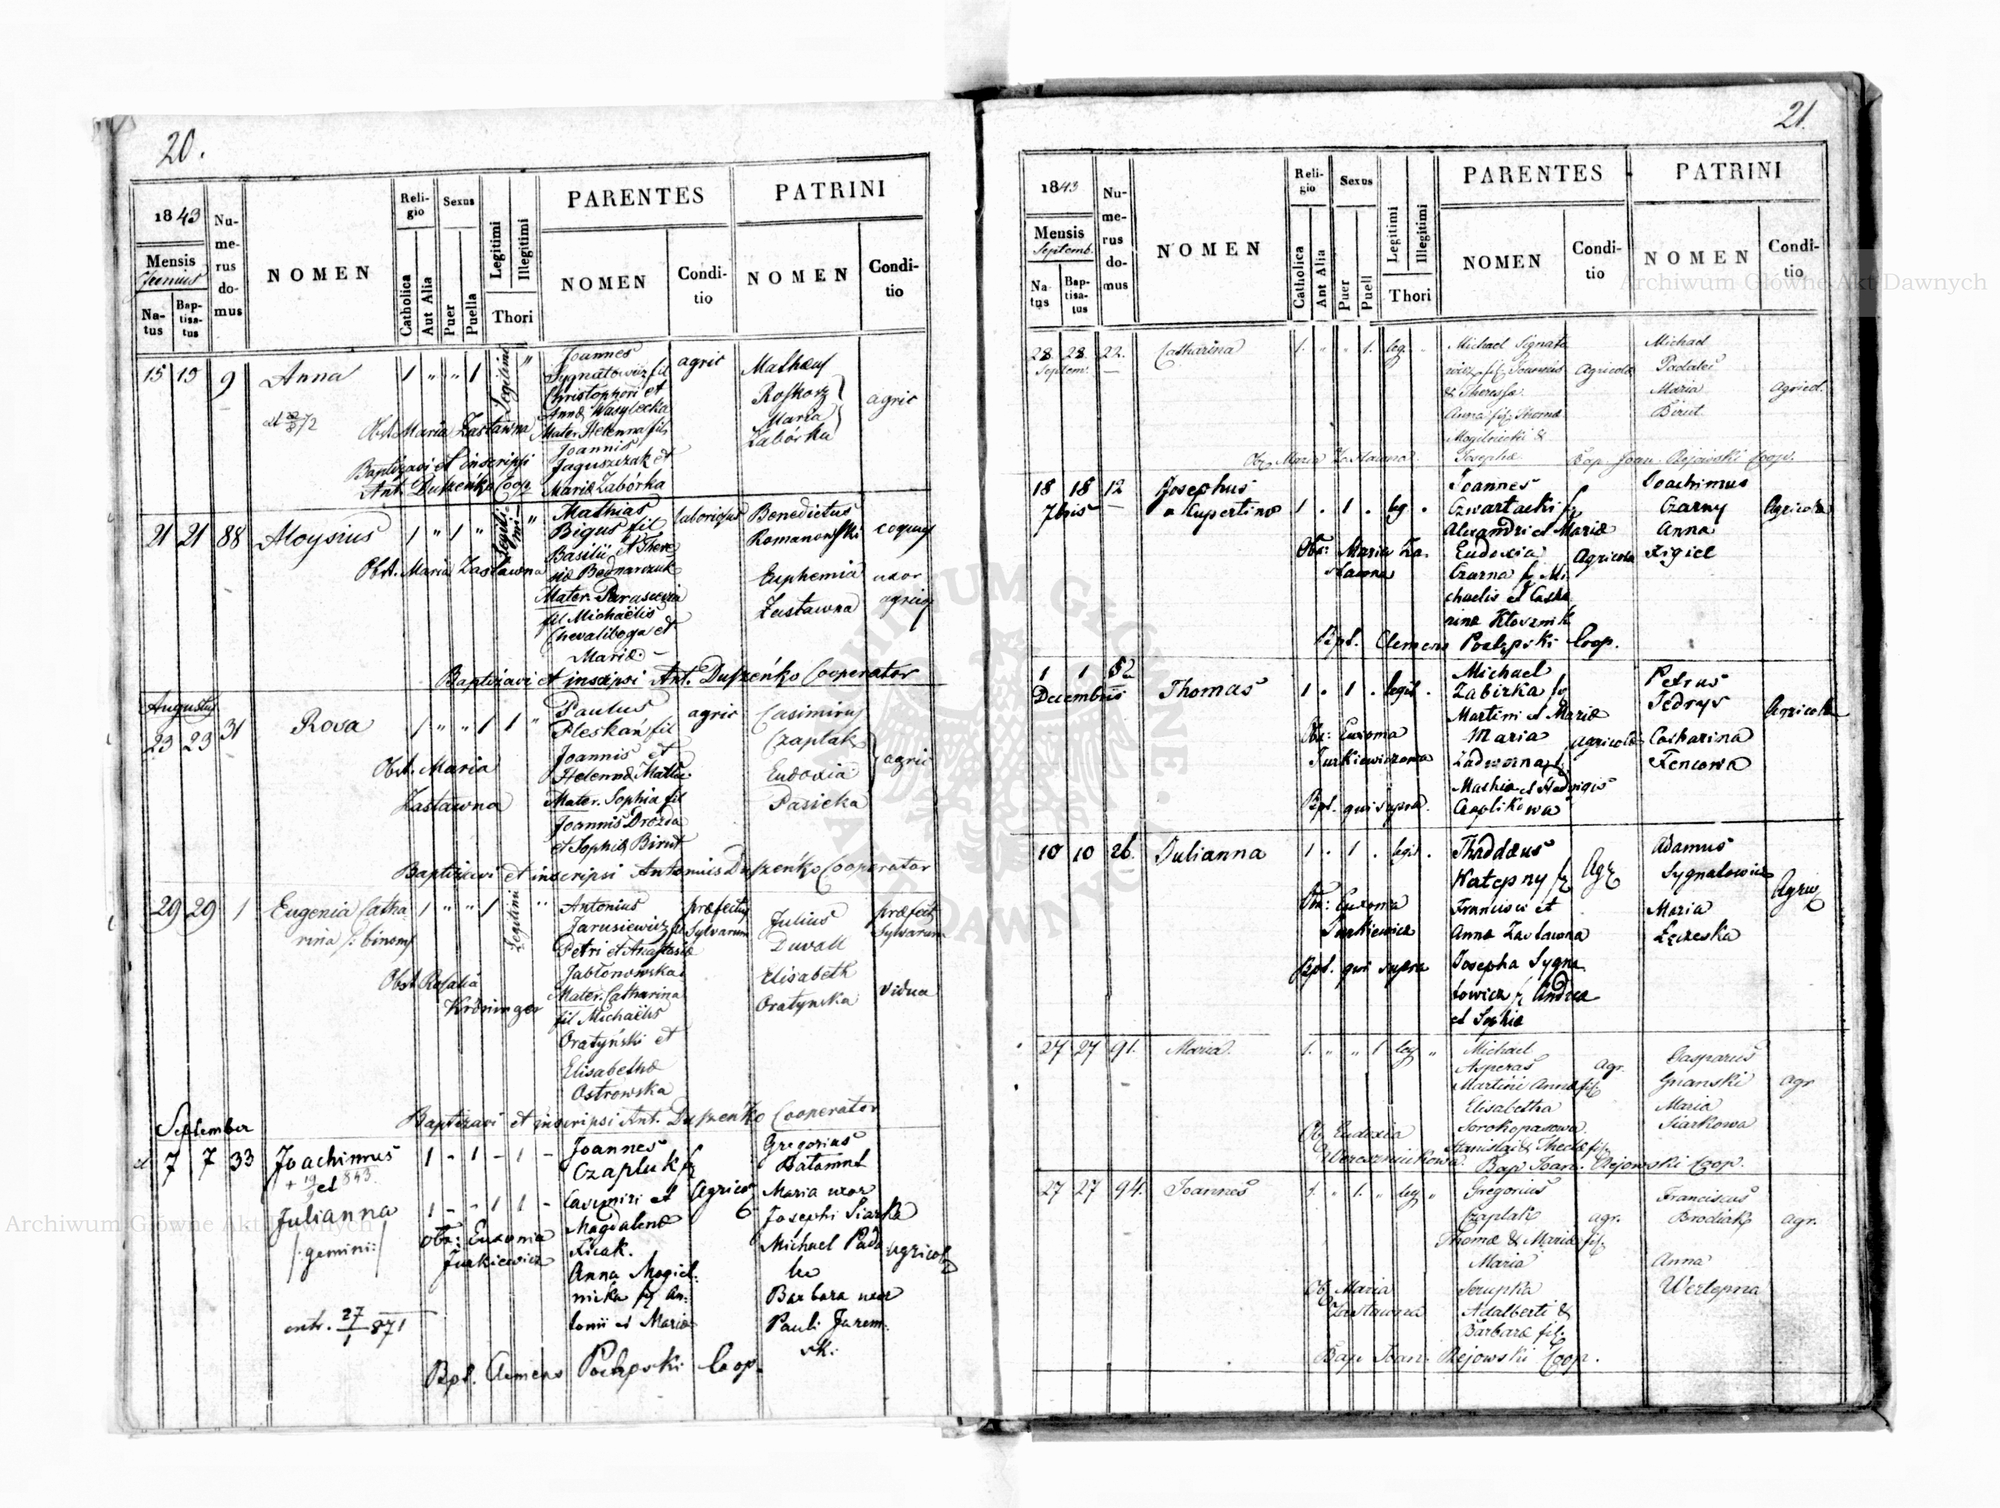 20.
1843
Mensis
Junius
Natus
Baptisatus
Numerus domus
NOMEN
Religio
Catholica
Aut Alia
Sexus
Puer
Puella
Legitimi
Illegitimi
Thori
PARENTES
NOMEN
Conditio
PATRINI
NOMEN
Conditio
15 15 9 Anna 1 " " 1 Legitimi "
Joannes
Sygnatowicz fil
Christophori et
Annæ Wasylecka
Mater Helenna fil
Joannis
Jaguszczak et
Mariæ Zabórka
agric
Mathæus
Maria
Zabórka
agric
Obst. Maria Zastawna
Baptizavi et inscripsi
Ant. Duszeńko Coop.
21 21 88 Aloysius 1 " 1 " Legitimi "
Mathias
Bigus fil
Basilii et There
siæ Bednarczuk
Mater
fil Michaëlis
Chevaliboga et
Mariæ
laboriosus
Benedictus
Romanowski
Euphemia
Zastawna
coquus
uxor
agric
Obst. Maria Zastawna
Baptizavi et inscripsi Ant. Duszeńko Cooperator
Augustus
23 23 31 Rosa 1 " " 1 1 "
Paulus
Pleskań fil
Joannis et
Helennæ Matla
Mater. Sophia fil
Joannis Drozda
et Sophiæ Birut
agric
Casimirus
Czaplak
Eudoxia
Pasieka
agric
Obst. Maria
Zastawna
Baptizavi et inscripsi Antonius Duszeńko Cooperator
29 29 1 Eugenia Catha
rina /: binom/
1 " " 1 Legitimi "
Antonius
Jarusiewicz fil
Petri et Anastasiæ
Jabłonowska
Mater. Catharina
fil Michaëlis
Oratyński et
Elisabethæ
Ostrowska
præfectus
Sylvarum
Julius
Duvall
Elisabeth
Oratynska
præfect
Sylvarum
vidua
Obst Rosalia
Kröninger
Baptizavi et inscripsi Ant. Duszeńko Cooperator
September
7 7 33 Joachimus 1 - 1 - 1 -
+ 19/9 853.
et
Julianna 1 - " 1 1 -
/:gemini:/
27/1 871
Joannes
Czapluk f
Casimiri et
Magdalenæ
Ficak.
Anna Mogiel-
nicka f An-
tonii et Mariæ
Agric
Gregorius
Batamut
Maria uxor
Josephi Siarka
Michael Pada
lec
Barbara uxor
Pauli Jarem-
ski
agricol
Obs: Euxonia
Jurkiewicz
Bpt. Clemens Poclepski Coop.
21.
1843
Mensis
Septemb.
Natus
Baptisatus
Numerus domus
NOMEN
Religio
Catholica
Aut Alia
Sexus
Puer
Puell
Legitimi
Illegitimi
Thori
PARENTES
NOMEN
Conditio
PATRINI
NOMEN
Conditio
28. 28. 22. Catharina 1. " " 1. leg. "
Septem.
Michael Signato
wicz fil. Joannis
& Theressæ
Anna fil: Thomæ
Mogilnicki &
Josephæ
Agricola
Michael
Padalec
Maria
Birut
Agricol.
Obs. Maria Zastawna
Bap. Joan. Rejowski Coop.
18 18 12 Josephus
7bris a Cupertino
1 . 1 . leg .
Joannes
Czwartacki f
Alexandri et Mariæ
Eudoxia
Czarna f Mi
chaelis et Catha
rinæ
Agricola
Joachimus
Czarny
Anna
Figiel
Agricola
Obs: Maria Za-
stawna
Bpt. Clemens Poclepski Coop.
1 1 52 Thomas 1 . 1 . legit .
Decembris
Michael
Zabirka f
Martini et Mariæ
Maria
Zadworna f
Mathiæ et Hedvigis
Czaplikowa
agricola
Petrus
Fedrys
Catharina
Fencowa
Agricola
Obs: Euxonia
Jurkiewiczowa
Bpt. qui supra.
10 10 26. Julianna 1 . 1 . legit .
Thaddæus
Watepny f
Francisci et
Annæ Zastawna
Josepha Sygna
towicz f Andreæ
et Sophiæ
Agr
Adamus
Sygnatowicz
Maria
Łęczeska
Agric
Obs: Euxonia
Jurkiewicz
Bpt. qui supra
27 27 91. Maria. 1. " " 1 leg "
Michael
Asperas
Martini Annæ fil.
Elisabetha
Sorokopasowa.
Stanislai & Theclæ fil.
agr.
Gasparus
Gnanski
Maria
Siarkowa
agr
Ob. Eudoxia
Wereszniukowa.
Bap. Joan. Rejowski Coop.
27 27 94. Joannes 1. " 1. " leg "
Gregorius
Czaplak
Thomæ & Mariæ fil.
Maria
Serupka
Adalberti &
Barbaræ fil.
agr.
Franciscus
Brodiak
Anna
Werlepna
agr.
Ob. Maria
Zastawna
Bap. Joan. Rejowski Coop.
Archiwum Główne Akt Dawnych
Archiwum Główne Akt Dawnych
ARCHIWUM GŁÓWNE AKT DAWNYCH